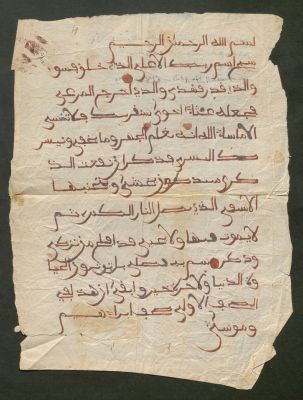 بسم الله الرحمن الرحيم
سبح اسم ربك الاعلى الذي خلق فسوى
والذي قدر فهدى والذي اخرج المرعى
فجعله غثاء احوى سنقرئك فلا تنسى
الا ما شاء الله انه يعلم الجهر وما يخفى ونيسر
ك لليسرى فذكر ان نفعت الذ
كرى سيذكر من يخشى ويتجنبها
الاشقى الذي يصلى النار الكبرى ثم
لا يموت فيها ولا يحيى قد افلح من تزكى
وذكر اسم ربه فصلى بل تؤثرون الحيا
ة الدنيا والاخرة خير وابقى ان هذا لفي
الصحف الاولى صحف ابراهيم
وموسى